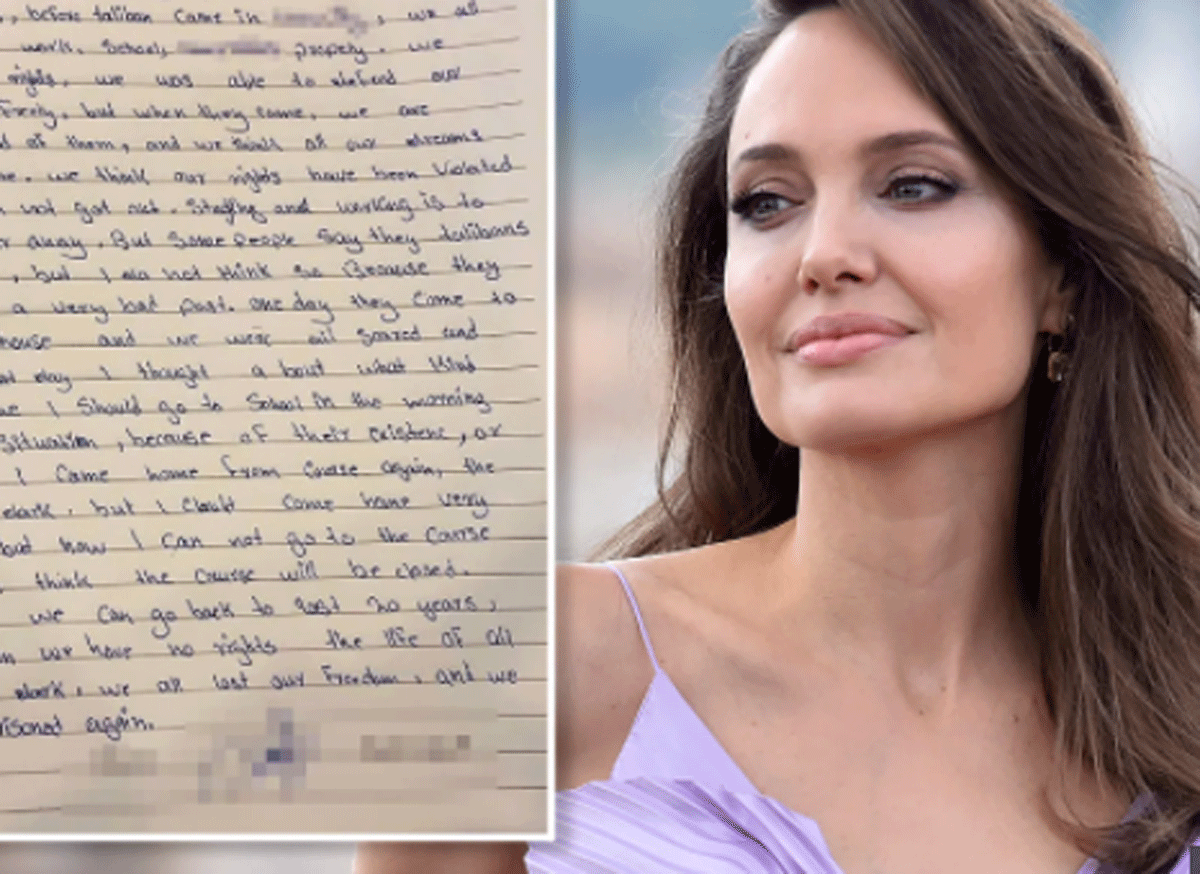 , before taliban came in , we all
work, School, properly. we
rights, we was able to defend our
Freely, but when they came, we are
of them, and we think all our dreams
. we think our rights have been Violated
not got out. Staying and working is to
away. But Some people Say they talibans
, but I do not think so Because they
a very bad past. one day they come to
house and we were all Scared and
day I thought a bout what kind
I Should go to School in the morning
Situation, because of their existenc, or
I Came home from Course again, the
dark, but I Could Come home very
but now I Can not go to the Course
think the Course will be closed.
we can go back to last 20 years,
we have no rights the life of all
dark, we all lost our Freedom, and we
again.